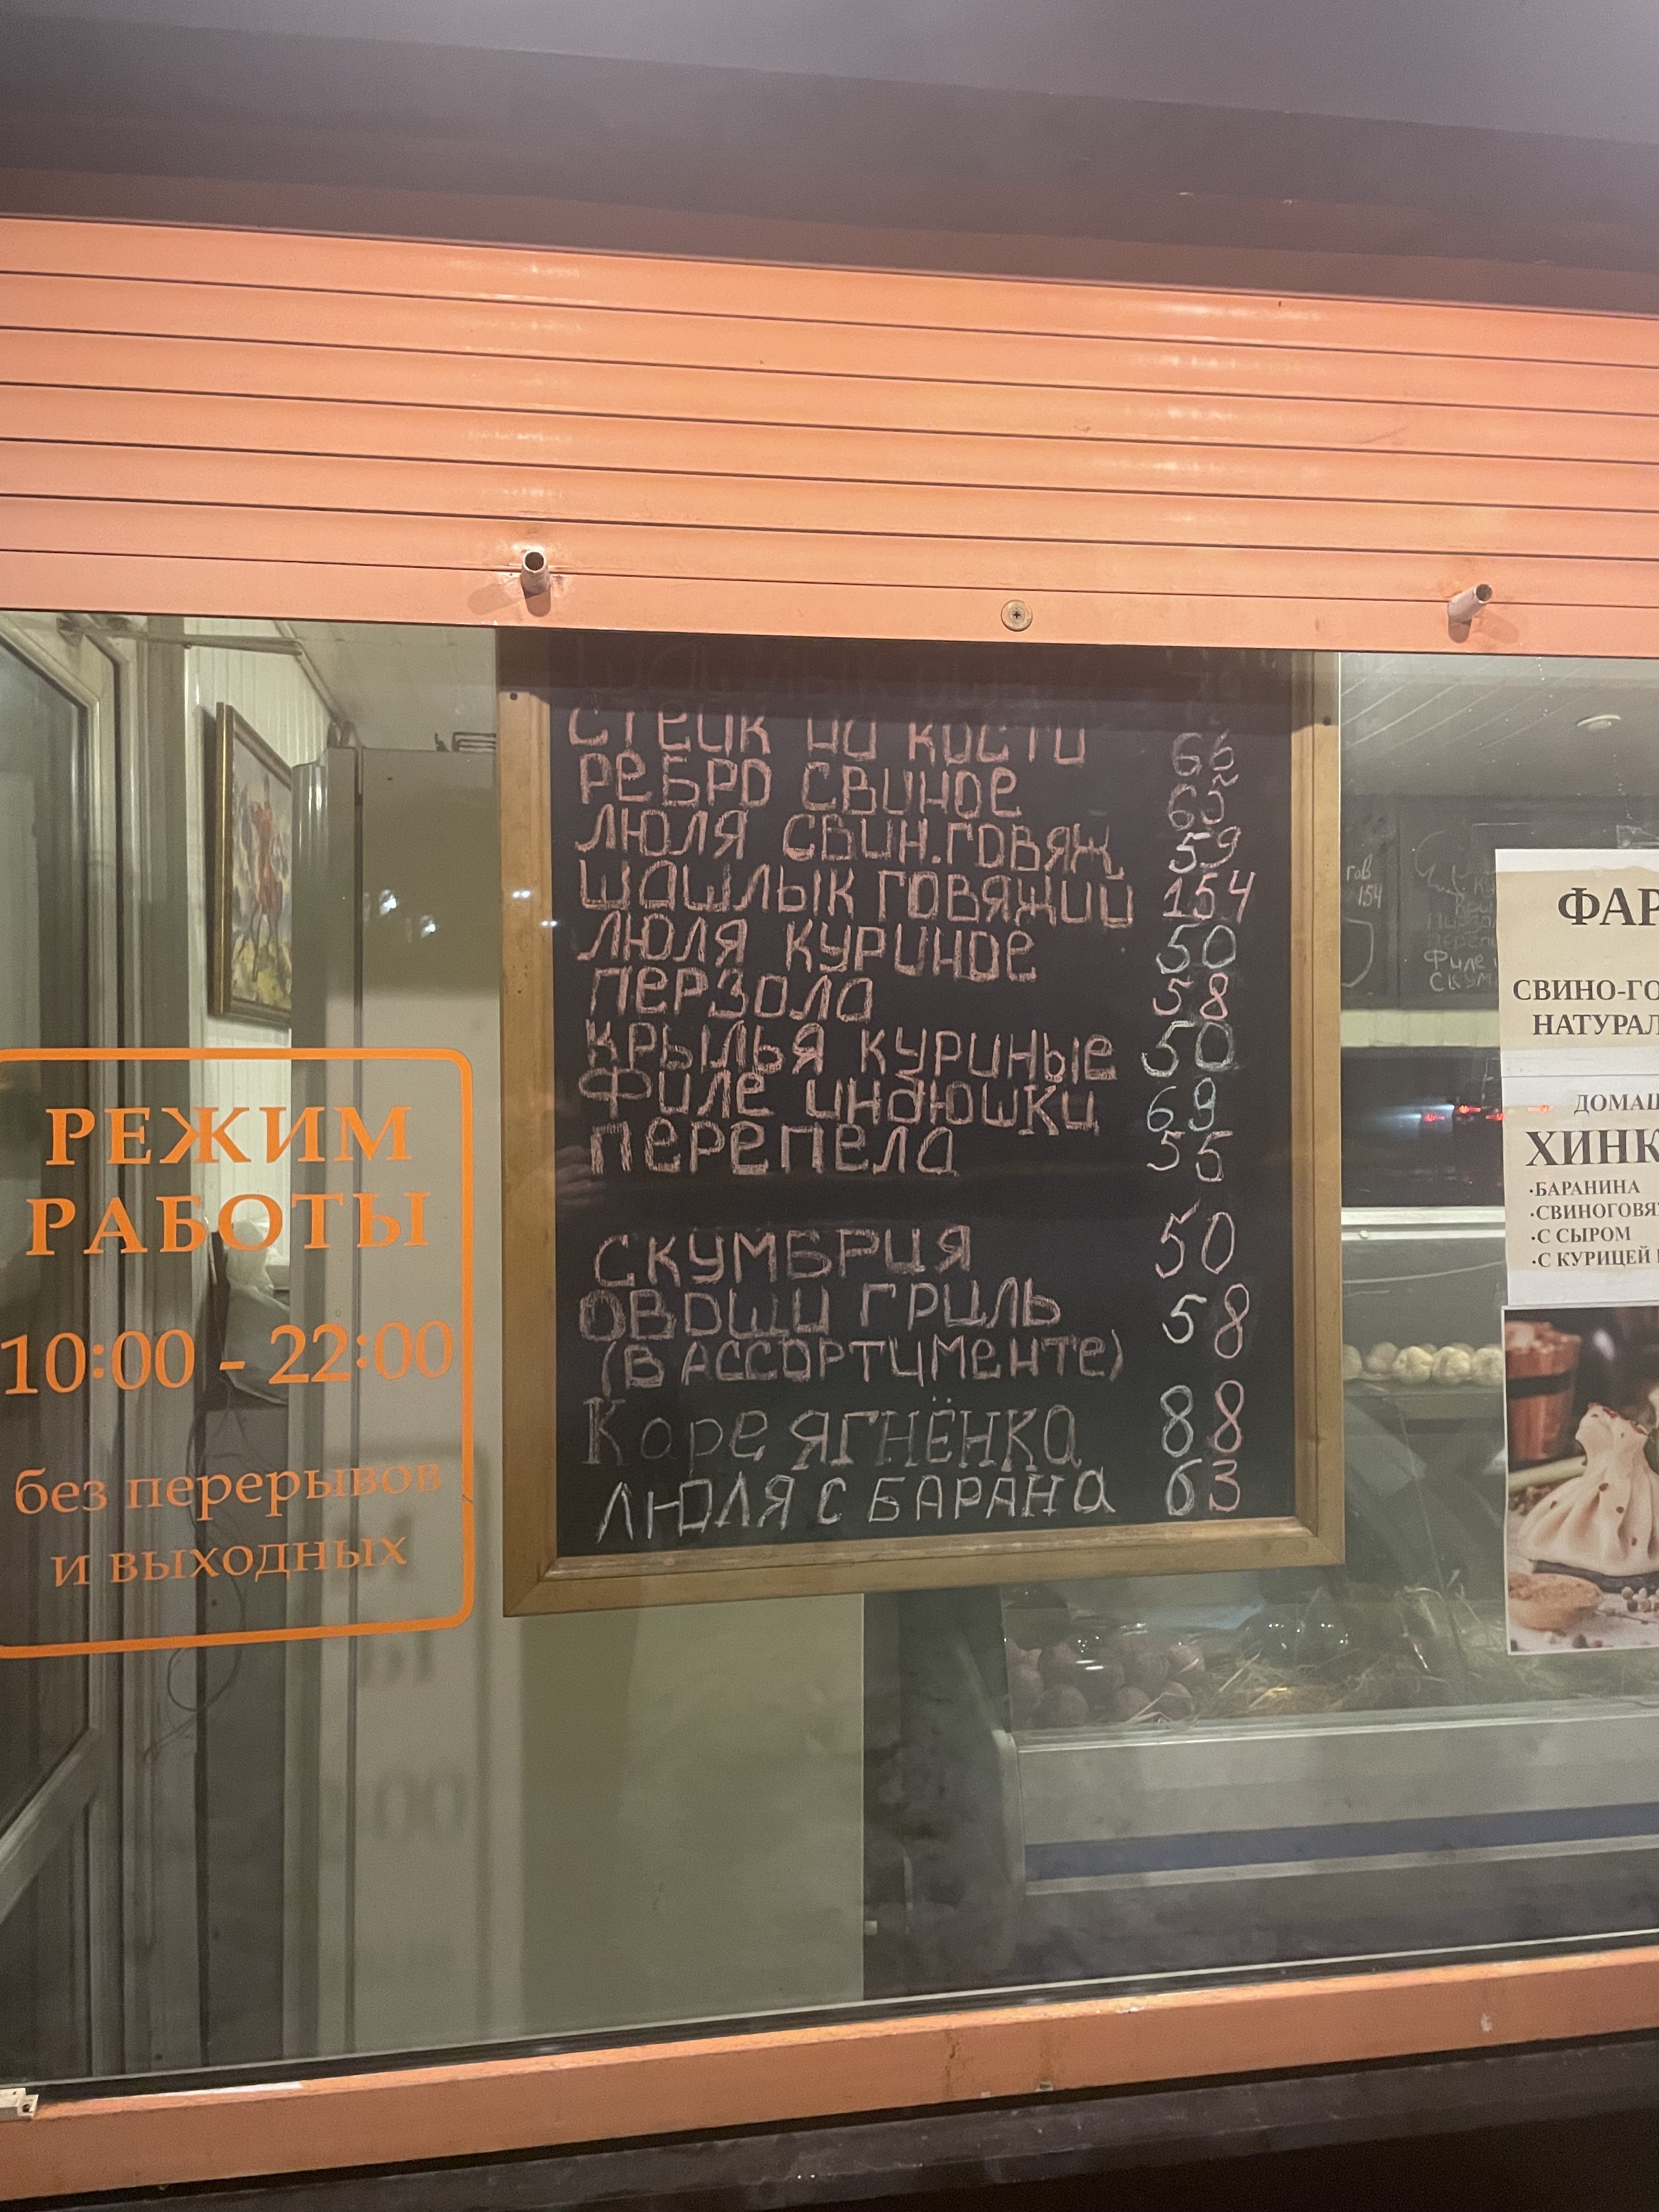 СТЕЙК НА КОСТИ 66
РЕБРО СВИНОЕ 65
ЛЮЛЯ СВИН.ГОВЯЖ 59
ШАШЛЫК ГОВЯЖИЙ 154
ЛЮЛЯ КУРИНОЕ 50
ПЕРЗОЛА 58
КРЫЛЬЯ КУРИНЫЕ 50
ФИЛЕ ИНДЮШКИ 69
ПЕРЕПЕЛА 55
СКУМБРИЯ 50
ОВОЩИ ГРИЛЬ 58
(В АССОРТИМЕНТЕ)
Коре ЯГНЁНКА 88
ЛЮЛЯ С БАРАНА 63
РЕЖИМ
РАБОТЫ
10:00 - 22:00
без перерывов
и выходных
гов
154
Филе
Скум
ФАР
СВИНО-ГО
НАТУРАЛ
ДОМАШ
ХИНК
·БАРАНИНА
·СВИНОГОВЯ
·С СЫРОМ
·С КУРИЦЕЙ